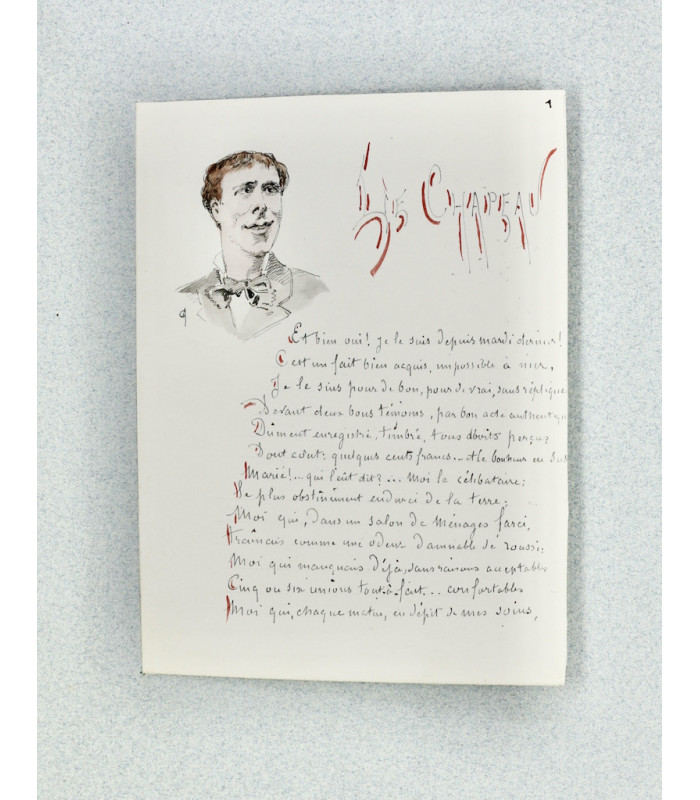 1
Le Chapeau
Et bien oui! Je le suis depuis mardi dernier!
C'est un fait bien acquis, impossible à nier,
Je le suis pour de bon, pour de vrai, sans réplique
Devant deux bons témoins, par bon acte authentiqu
Dûment enregistré, timbré, tous droits perçus
Dont coût: quelques cents francs... et le bonheur en sus
Marié!... qui l'eût dit?... Moi le célibataire:
Le plus obstinément endurci de la terre;
Moi qui, dans un salon de Ménages farci,
Trainais comme une odeur damnable de roussi;
Moi qui manquais déjà, sans raisons acceptables
Cinq ou six unions tout-à-fait... confortables
Moi qui, chaque matin, en dépit de mes soins,